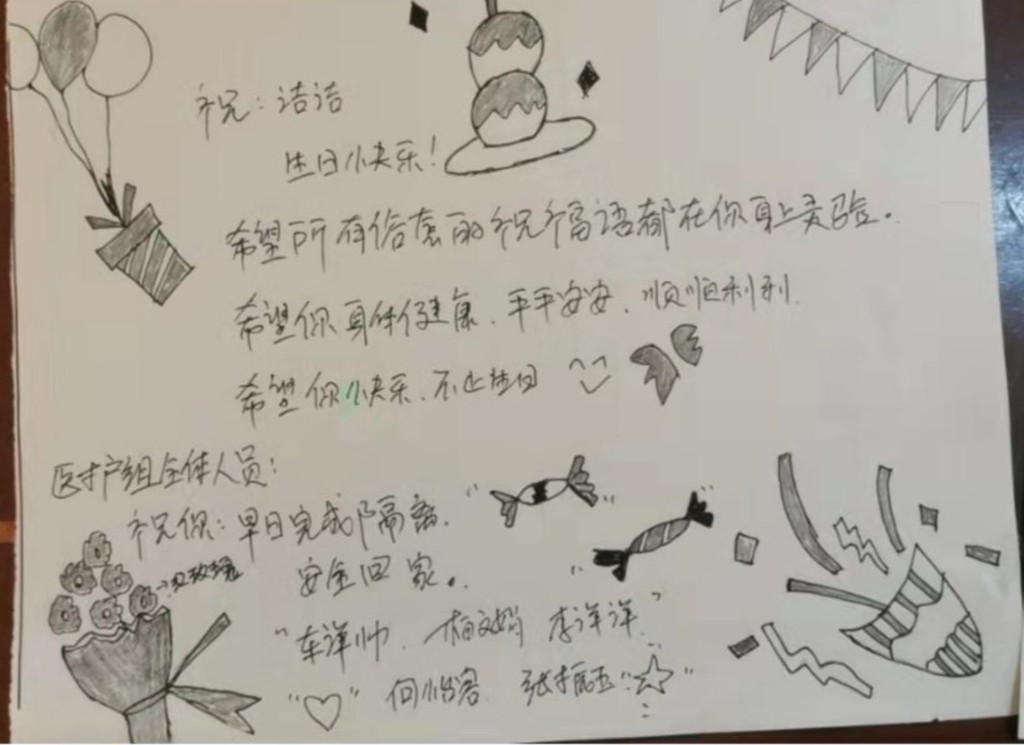 祝：洁洁
生日小快乐！
希望所有俗套的祝福语都在你身上灵验。
希望你身体健康、平平安安、顺顺利利.
希望你小快乐、不止生日
医护组全体人员：
祝你：早日完成隔离、
火玫瑰
安全回家。
"车洋帅、杨文娟 李洋洋、"
何怡容、张振五